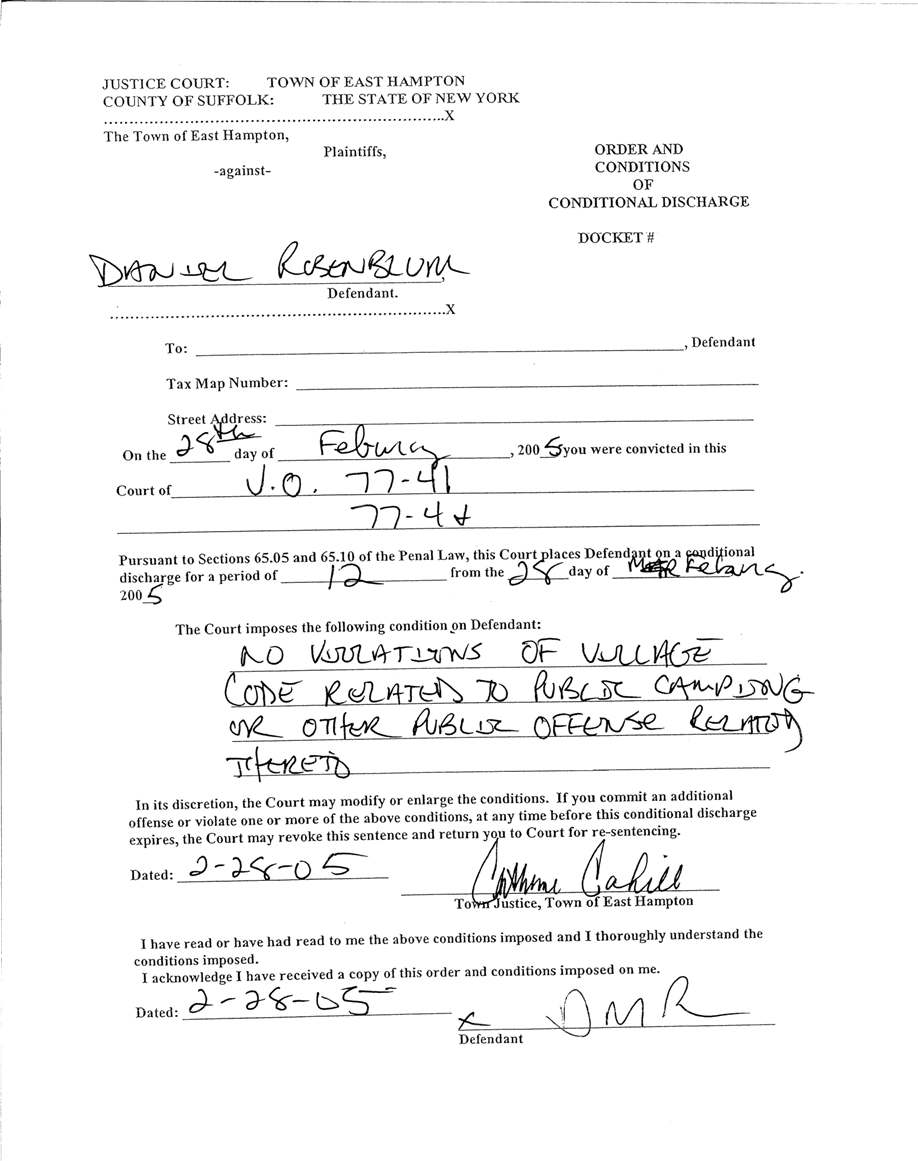 JUSTICE COURT: TOWN OF EAST HAMPTON
COUNTY OF SUFFOLK: THE STATE OF NEW YORK
..................................................................X
The Town of East Hampton,
Plaintiffs,
-against-
ORDER AND
CONDITIONS
OF
CONDITIONAL DISCHARGE
DOCKET #
DANIEL ROSENBLUM,
Defendant.
..................................................................X
To: ____________________, Defendant
Tax Map Number: ____________________
Street Address: ____________________
On the 28th day of Febuary, 2005 you were convicted in this
Court of V.O. 77-41
77-4
Pursuant to Sections 65.05 and 65.10 of the Penal Law, this Court places Defendant on a conditional
discharge for a period of 12 from the 28 day of Febuary.
2005
The Court imposes the following condition on Defendant:
NO VIOLATIONS OF VILLAGE
CODE RELATED TO PUBLIC CAMPING
OR OTHER PUBLIC OFFENSE RELATED
THERETO
In its discretion, the Court may modify or enlarge the conditions. If you commit an additional
offense or violate one or more of the above conditions, at any time before this conditional discharge
expires, the Court may revoke this sentence and return you to Court for re-sentencing.
Dated: 2-28-05
Catherine Cahill
Town Justice, Town of East Hampton
I have read or have had read to me the above conditions imposed and I thoroughly understand the
conditions imposed.
I acknowledge I have received a copy of this order and conditions imposed on me.
Dated: 2-28-05
x DMR
Defendant